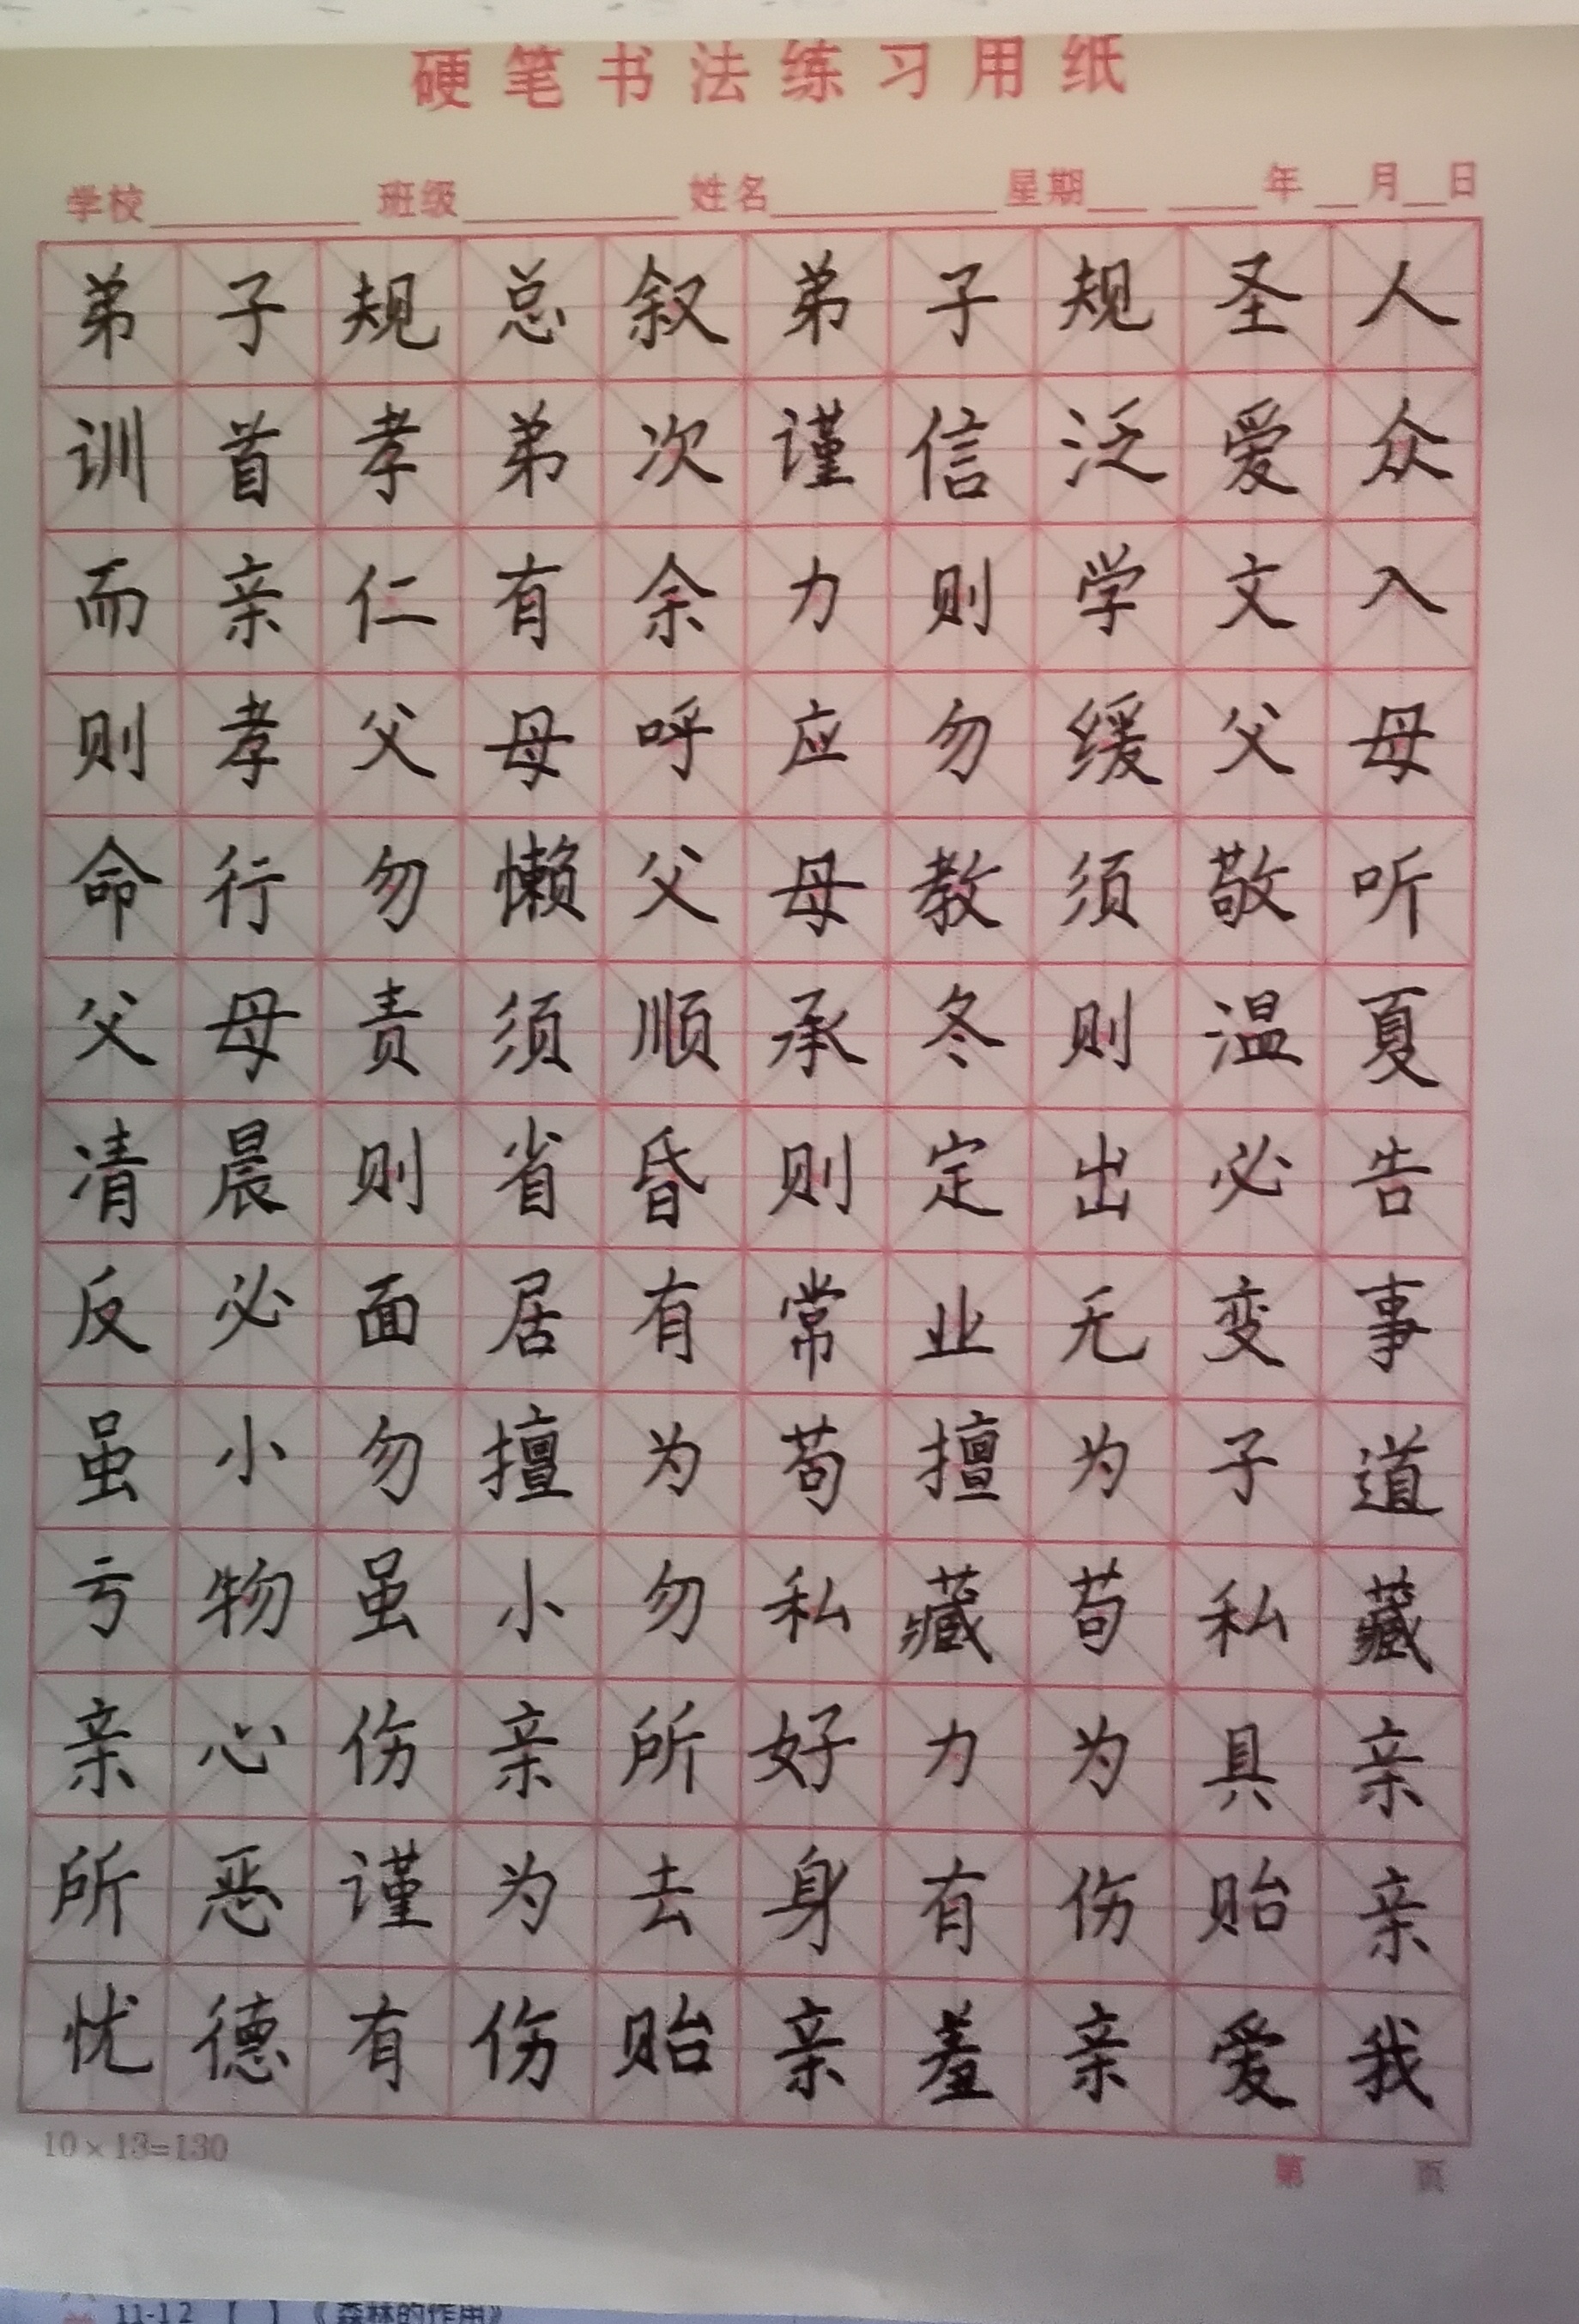 硬笔书法练习用纸
学校 班级 姓名 星期 年 月 日
弟子规总叙弟子规圣人
训首孝弟次谨信泛爱众
而亲仁有余力则学文入
则孝父母呼应勿缓父母
命行勿懒父母教须敬听
父母责须顺承冬则温夏
凊晨则省昏则定出必告
反必面居有常业无变事
虽小勿擅为苟擅为子道
亏物虽小勿私藏苟私藏
亲心伤亲所好力为具亲
所恶谨为去身有伤贻亲
忧德有伤贻亲羞亲爱我
10×13=130
第 页
11-12 【 】《森林的作用》